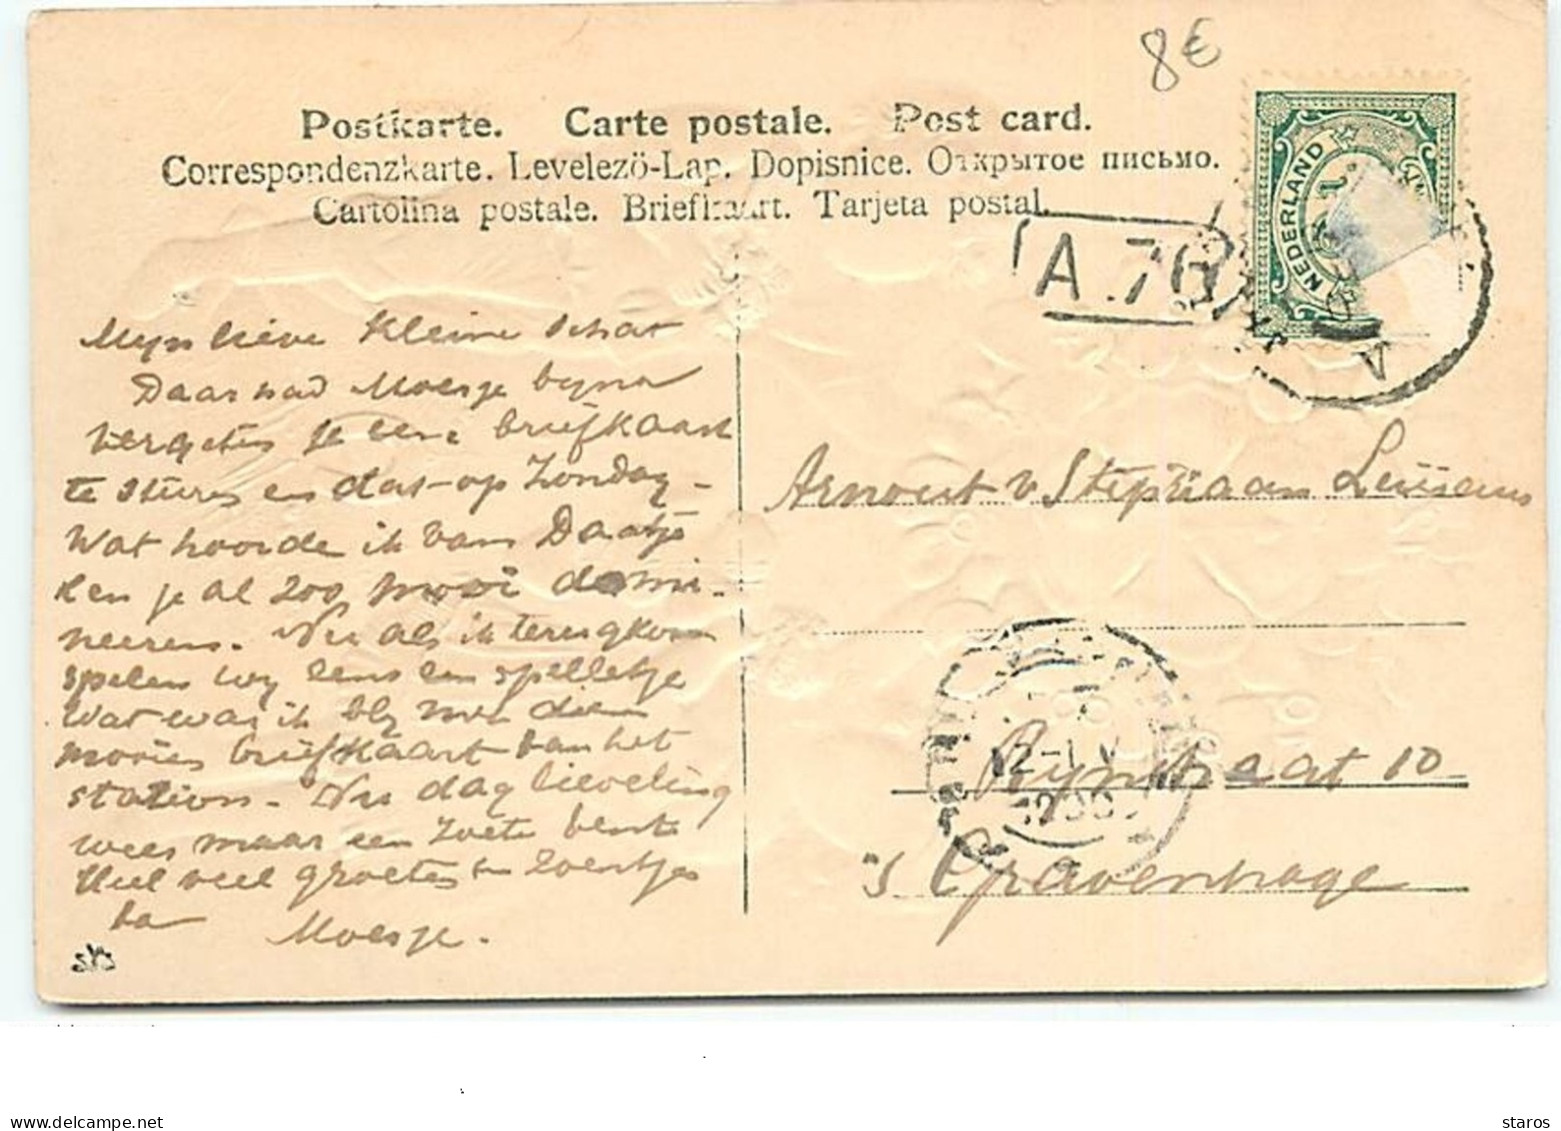 8€
Postkarte. Carte postale. Post card.
Correspondenzkarte. Levelező-Lap. Dopisnice. Открытое письмо.
Cartolina postale. Briefkaart. Tarjeta postal.
NEDERLAND
A.76
Mijn lieve kleine schat
Daar had Moesje bijna
vergeten je een briefkaart
te sturen en dat op Zondag -
Wat hoorde ik van Daatje
ken je al zoo mooi domi-
neeren. Nu als ik terugkom
spelen wij eens een spelletje
Wat was ik blij met dien
mooien briefkaart van het
station. Nu dag lieveling
wees maar een zoete vent
Heel veel groeten en zoentjes
van
Moesje.
Arnout v Stepriaan Luïscius
Rijnstraat 10
's Gravenhage
12-1 V
delcampe.net
staros